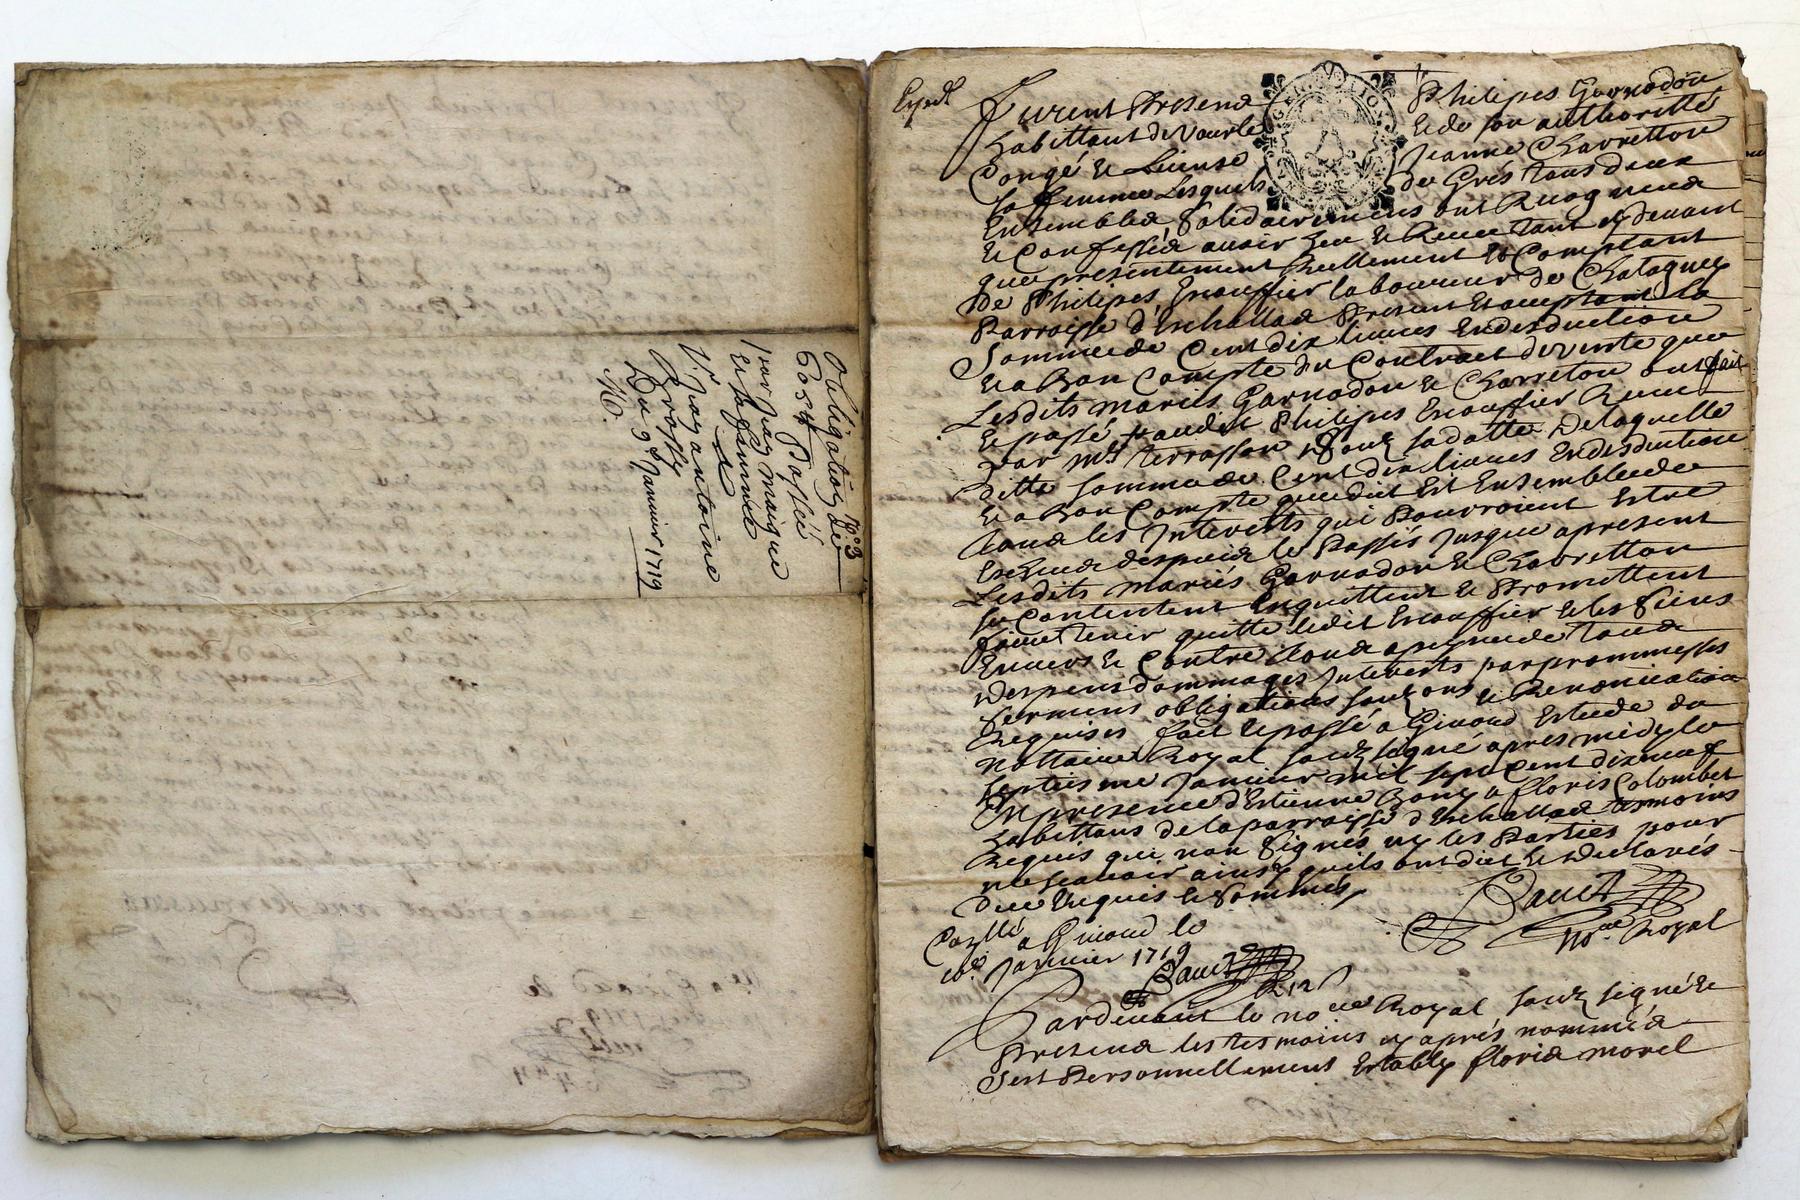 Obligation de
N° 3
60 s# Passée
par Jay maisque
et sa femme
a
Sr. Jay antoine
Brossy
Du 9e Janvier 1719
M.
Exped
furent Presens Philipes Garnodon
habittant de Vourle et de son authoritté
Congé et License Jeanne Charretton
sa femme Lesquels de Grés tous deux
Ensembles, Solidairement ont Recognus
et Confessés avoir heu et Receu tant cy devant
que presentement Reellement et Comptant
de Philipes Escouffier laboureur de Chatagney
Parroisse d'Eschallas Present et acceptant la
Somme de Cent dix livres En desduction
et a Bon Compte du Contract de vente que
Lesdits mariés Garnodon et Charreton ont fait
et passé audit Philipes Escouffier Receu
par Me Terrasson Soubz sa datte De laquelle
ditte somme de Cent dix livres En desduction
et a Bon Compte que dict Est Ensemble de
tous les Interests qui Pourroient Estre
Escheus despuis le Passés Jusque apresent
Lesdits mariés Garnodon et Charretton
se Contentent Enquittent et Promettent
faire tenir quitte ledit Escouffier et les Siens
Envers et Contre tous a peyne de tous
despens dommages Interests par prommesses
sermens obligations Soubzons et Renonciations
Requises fait et passé a Givord Estude du
nottaire Royal soubz signé apres midy le
septiesme Janvier mil sept Cent dixneuf
En presence d'Estienne Bony et floris Colombet
habittans de la parroisse d'Eschallas tesmoins
Requis qui n'ont Signés ny les Parties pour
ne scavoir ainsy quils ont dict et Declarés
Due Requis et Sommés,
Dauet
Nore Royal
Con̄llé a Givord le
10e Janvier 1719
Dauet
R 12 s
Pardevant le nore Royal soubz signé Et
Presens les tesmoins cy après nommés
Sest Personnellement Estably floris morel